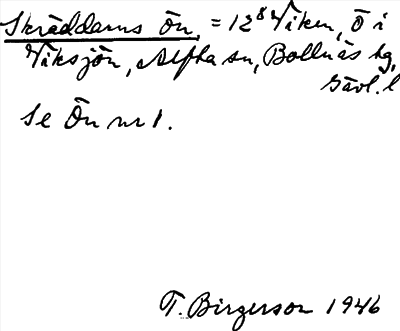 Skräddarns Ön, = 12⁸ Viken, Ö i
Viksjön, Alfta sn, Bollnäs tg,
Gävl. l
Se Ön nr 1.
T. Birgerson 1946